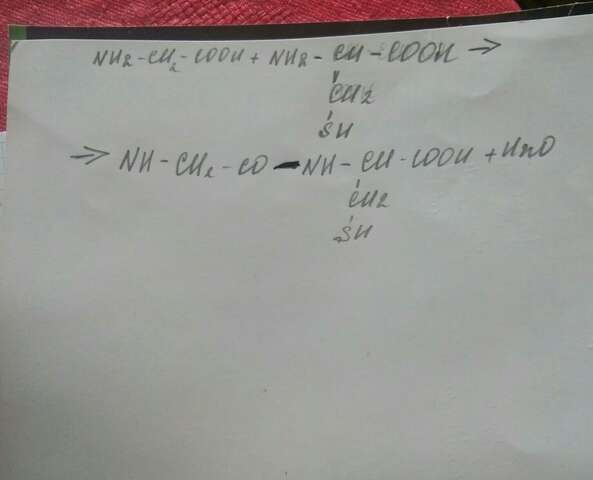 NH2-CH2-COOH + NH2-CH-COOH →
CH2
SH
→ NH-CH2-CO-NH-CH-COOH + H2O
CH2
SH